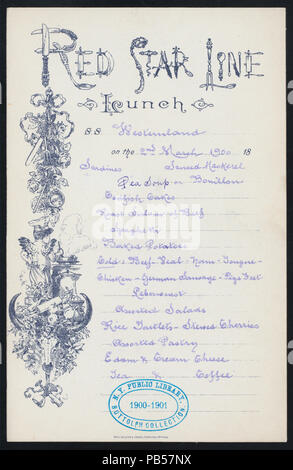 RED STAR LINE
Lunch
S.S. Westernland
on the 2nd March 1900 18
Sardines Soused Mackerel
Pea Soup or Bouillon
Codfish Cakes
Roast of Beef
Spaghetti
Baked Potatoes
Cold: Beef-Veal-Ham-Tongue-
Chicken-German Sausage-Pigs Feet
Leberwurst
Assorted Salads
Rice Tartlets-Stewed Cherries
Assorted Pastry
Edam & Cream Cheese
Tea & Coffee
N.Y. PUBLIC LIBRARY
1900-1901
BUTTOLPH COLLECTION
alamy
Image ID: PB57NX
www.alamy.com